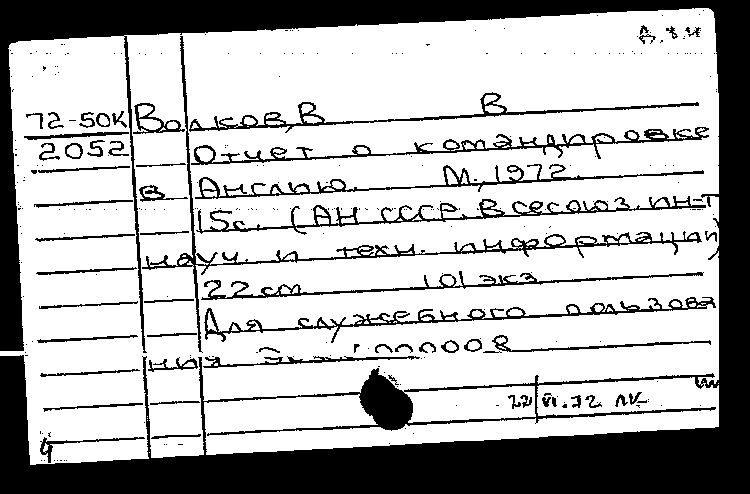 72-50К Волков, В В
2052 Отчет о командировке
в Англию. М., 1972.
15с. (АН СССР. Всесоюз. ин-т
науч. и техн. информации)
22 см 101 экз
Для служебного пользова
ния Экз 000008
22/VI.72 ЛК
4